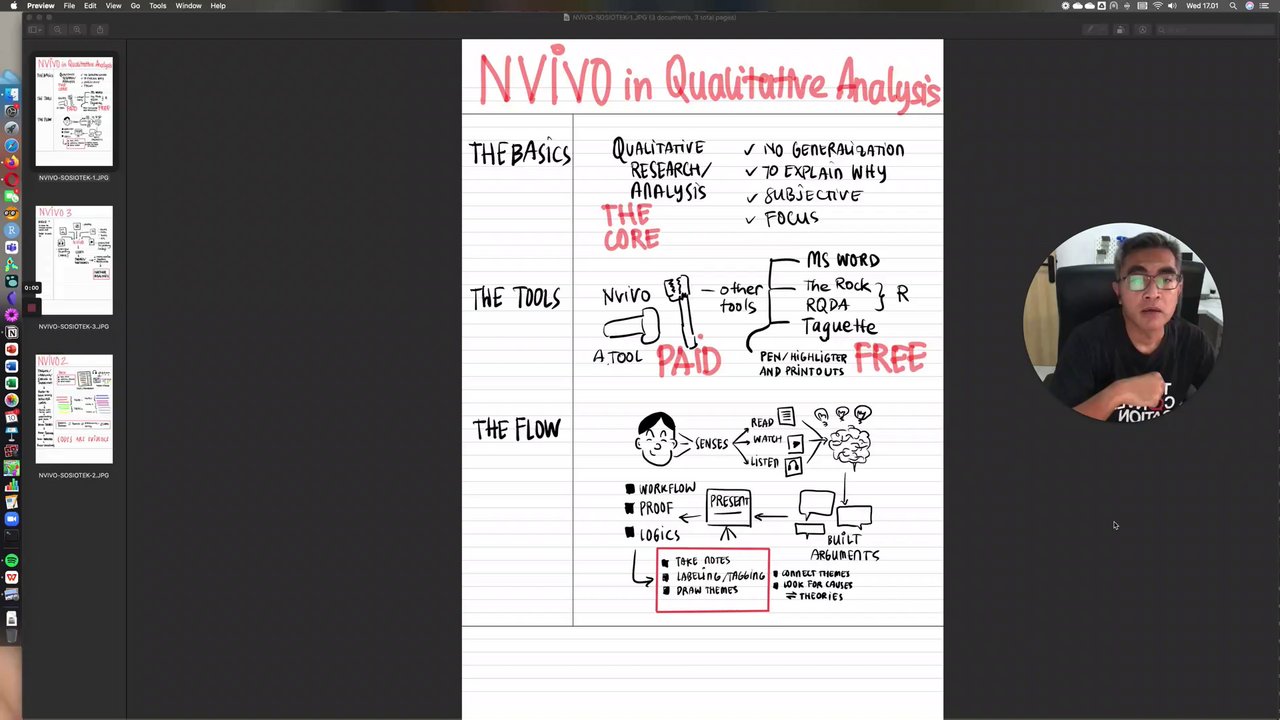 Preview File Edit View Go Tools Window Help
Wed 17.01
NVIVO-SOSIOTEK-1.JPG (3 documents, 3 total pages)
NVIVO-SOSIOTEK-1.JPG
NVIVO 3
NVIVO-SOSIOTEK-3.JPG
NVIVO 2
CODES ARE SYMBOLS
NVIVO-SOSIOTEK-2.JPG
0:00
NVIVO in Qualitative Analysis
THE BASICS
QUALITATIVE
RESEARCH/
ANALYSIS
THE
CORE
✓ NO GENERALIZATION
✓ TO EXPLAIN WHY
✓ SUBJECTIVE
✓ FOCUS
THE TOOLS
Nvivo
A TOOL
PAID
other
tools
MS WORD
The Rock
RQDA
R
Taguette
PEN/HIGHLIGTER
AND PRINTOUTS
FREE
THE FLOW
SENSES
READ
WATCH
LISTEN
BUILT
ARGUMENTS
PRESENT
WORKFLOW
PROOF
LOGICS
TAKE NOTES
LABELING/TAGGING
DRAW THEMES
CONNECT THEMES
LOOK FOR CAUSES
⇌ THEORIES